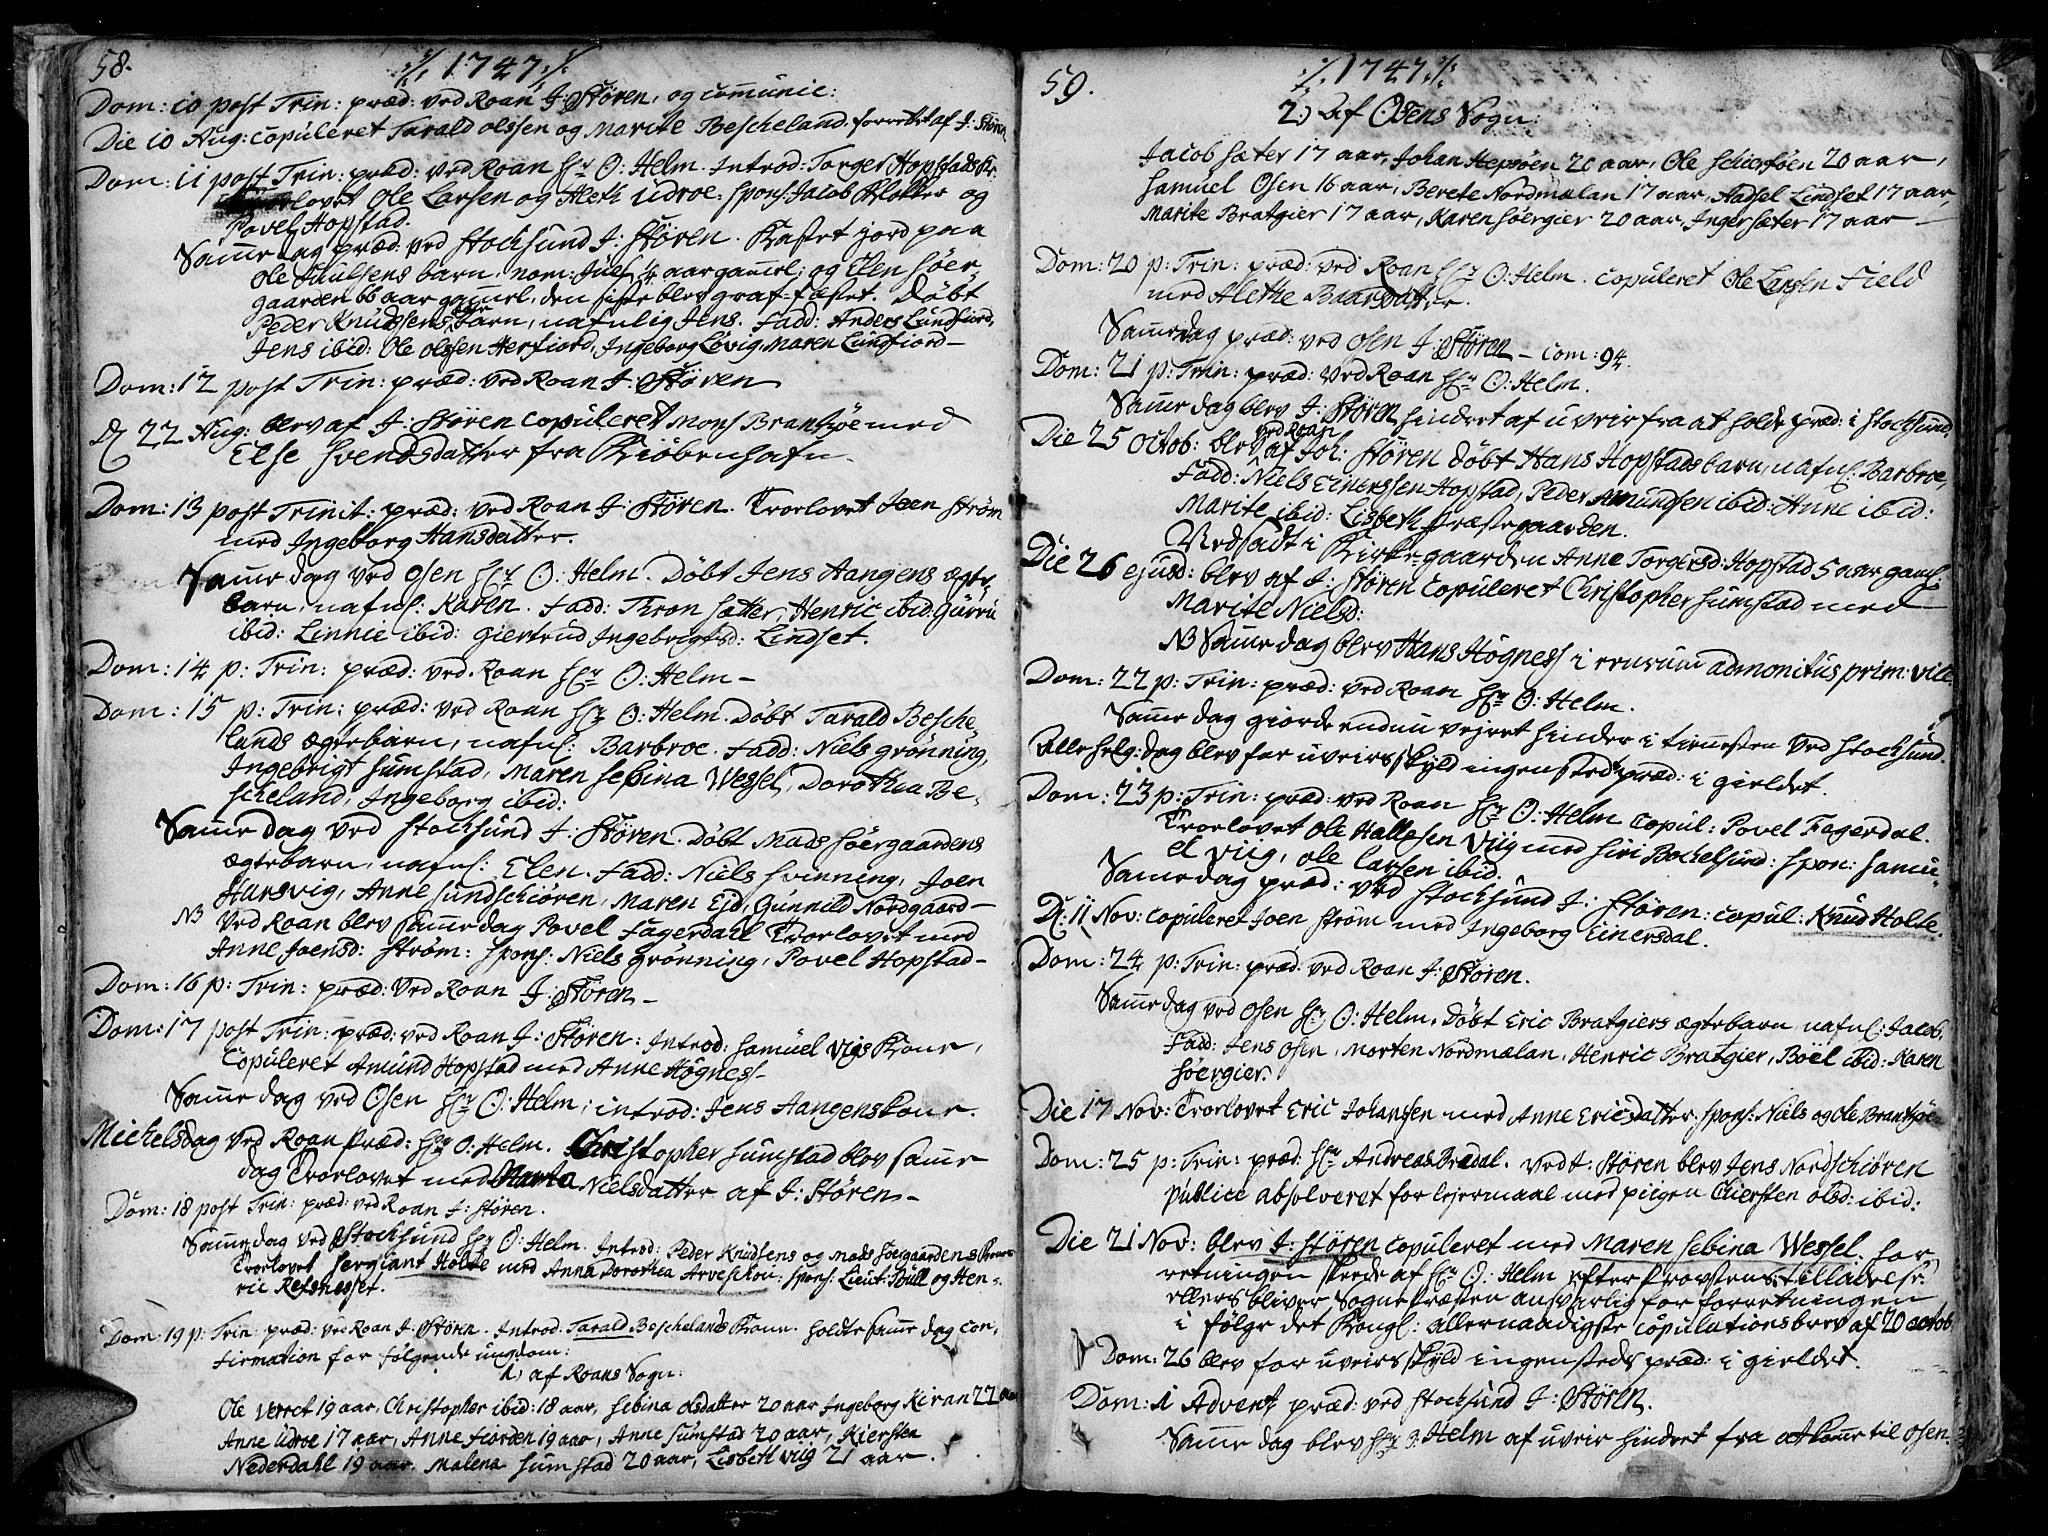 58.
:/: 1747 :/:
Dom: 10 post Trin: præd: ved Roan J: Stören, og communic:
Die 10 Aug: copuleret Tarald olssen og Marite Bescheland. forrettet af J: Stören
Dom: 11 post Trin: præd: ved Roan Hr O: Helm. Introd: Torger Hopstads Kr.
Troelovet Ole Larsen og Aleth Udroe: spons: Jacob Klakker og
Povel Hopstad.
Samme dag præd: ved Stocksund J: Stören. Kastet jord paa
Ole Juulsens barn, nom: Juel, 1/2 aar gamel; og Elen Söer-
gaarden 66 aar gamel, den siste blev graf-fæstet. Döbt
Peder Knudssens barn, nafnlig Jens. Fadd: Anders Lundfiord,
Jens ibid: Ole olssen Herfiord, Ingeborg Lövig, Maren Lundfiord-
Dom: 12 post Trin: præd: ved Roan J: Stören
D 22 Aug: blev af J: Stören copuleret Mons Brandsöe med
Else Svendsdatter fra Kiöbenhafn.
Dom: 13 post Trinit: præd: ved Roan J: Stören. Troelovet Joen Ström
med Ingeborg Hansdatter.
Samme dag ved Osen Hr O: Helm. Döbt Jens Aangens ægte-
barn, nafnl: Karen. Fadd: Thron Sætter, Henric ibid: Gurru
ibid: Linnie ibid: Giertrud Ingebrigtsd: Lindset.
Dom: 14 p: Trin: præd: ved Roan Hr O: Helm-
Dom: 15 p: Trin: præd: ved Roan Hr O: Helm. Döbt Tarald Besche-
lands ægtebarn, nafnl: Barbroe. Fadd: Niels Grönning,
Ingebrigt Sumstad, Maren Sebina Wessel, Dorothea Be-
scheland, Ingeborg ibid:
Samme dag ved Stocksund J: Stören. Döbt Mads Söergaardens
ægtebarn, nafnl: Elen. Fadd: Niels Svinning, Joen
Harsvig, Anne Sundschiören, Maren Ejd, Gunnild Nordgaard-
NB Ved Roan blev samme dag Povel Fagerdahl Troelovet med
Anne Joensd: Ström: spons: Niels Grönning, Povel Hopstad-
Dom: 16 p: Trin: præd: ved Roan J: Stören-
Dom: 17 post Trin: præd: ved Roan J: Stören: Introd: Samuel Vigs Kone,
Copuleret Amund Hopstad med Anne Högness-
Samme dag ved Osen Hr O: Helm; introd: Jens Aangens kone.
Michelsdag ved Roan præd: Hr O: Helm. Christopher Sumstad blev samme
dag Troelovet med Marta Nielsdatter af J: Stören-
Dom: 18 post Trin: præd: ved Roan J: Stören.
Samme dag ved Stocksund Hr O: Helm. Introd: Peder Knudsens og Mads Söergaardens Koner
Troelovet Sergiant Holte med Anna Dorothea Arveschou: spons: Lieut: Bull og Hen-
ric Refsnesset.
Dom: 19 p: Trin: præd: ved Roan J: Stören. Introd: Tarald Beschelands Kone. holdte samme dag con-
firmation for fölgende ungdom:
1, af Roans Sogn:
Ole Verret 19 aar, Christopher ibid: 18 aar, Sebina olsdatter 20 aar Ingeborg Kiran 22 aar
Anne Udroe 17 aar, Anne Fiorden 19 aar, Anne Sumstad 20 aar, Kiersten
Nederdahl 19 aar. Malena Sumstad 20 aar, Lisbeth Viig 21 aar.
59.
:/: 1747 :/:
2.) Af Osens Sogn:
Jacob Sæter 17 aar, Johan Hepsöen 20 aar, Ole Schiersöen 20 aar,
Samuel Osen 16 aar, Berete Nordmælan 17 aar, Aadsel Lindset 17 aar,
Marite Bratgier 17 aar, Karen Söergier 20 aar, Inger Sæter 17 aar -
Dom: 20 p: Trin: præd: ved Roan Hr O: Helm. copuleret Ole Larsen Field
med Alethe Baarsdatter.
Samme dag præd: ved Osen J: Stören - com: 94.
Dom: 21 p: Trin: præd: ved Roan Hr O: Helm.
Samme dag blev J: Stören hindret af uveir fra at holde præd: i Stocksund.
ved Roan
Die 25 octob: blev af Joh: Stören döbt Hans Hopstads barn, nafnl: Barbroe,
Fadd: Niels Einerssen Hopstad, Peder Amundsen ibid: Anne ibid:
Marite ibid: Lisbeth Præstegaarden.
Nedsadt i Kirke-gaarden Anne Torgersd: Hopstad 5 aar gaml:
Die 26 ejusd: blev af J: Stören copuleret Christopher Sumstad med
Marite Nielsd:
NB Samme dag blev Hans Högness admonitus prim: vice.
Dom: 22 p: Trin: præd: ved Roan Hr O: Helm.
Samme dag giorde endnu vejret hinder i tienesten ved Stocksund.
Allehelg: dag blev for uveirs skyld ingensteds præd: i gieldet.
Dom: 23 p: Trin: præd: ved Roan Hr O: Helm copul: Povel Fagerdal.
Troelovet Ole Hallesen Viig med Siri Bochelsund: spon: Samu-
el Viig, ole larsen ibid.
Samme dag præd: ved Stocksund J: Stören: copul: Knud Holte.
D: 11 Nov: copuleret Joen Ström med Ingeborg Einersdal.
Dom: 24 p: Trin: præd: ved Roan J: Stören.
Samme dag ved Osen Hr O: Helm. Döbt Eric Bratgiers ægtebarn nafnl: Jacob,
Fadd: Jens Osen, Morten Nordmælan, Henric Bratgier, Böel ibid: Karen
Söergier.
Die 17 Nov: Troelovet Eric Johansen med Anne Ericsdatter. spons: Niels og Ole Brandsöe
Dom: 25 p: Trin: præd: Hr Andreas Bredal. ved J: Stören blev Jens Nordschiören
publice absolveret for lejermaal med piigen Chiersten olsd: ibid:
Die 21 Nov: blev J: Stören copuleret med Maren Sebina Wessel. for
retningen skeede af Hr O: Helm efter Provstens tilladelse.
ellers bliver Sognepræsten ansvarlig for forretningen
i fölge det Kongl: allernaadigste copulations brev af 20 octob
Dom: 26 blev for uveirs skyld ingensteds præd: i gieldet.
Dom: 1 Advent præd: ved Stocksund J: Stören.
Samme dag blev Hr O: Helm af uveir hindret fra at komme til Osen.